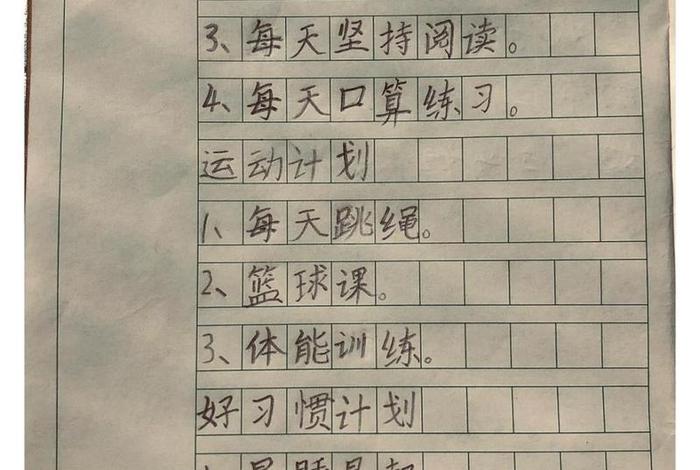 3、每天坚持阅读。
4、每天口算练习。
运动计划
1、每天跳绳。
2、篮球课。
3、体能训练。
好习惯计划